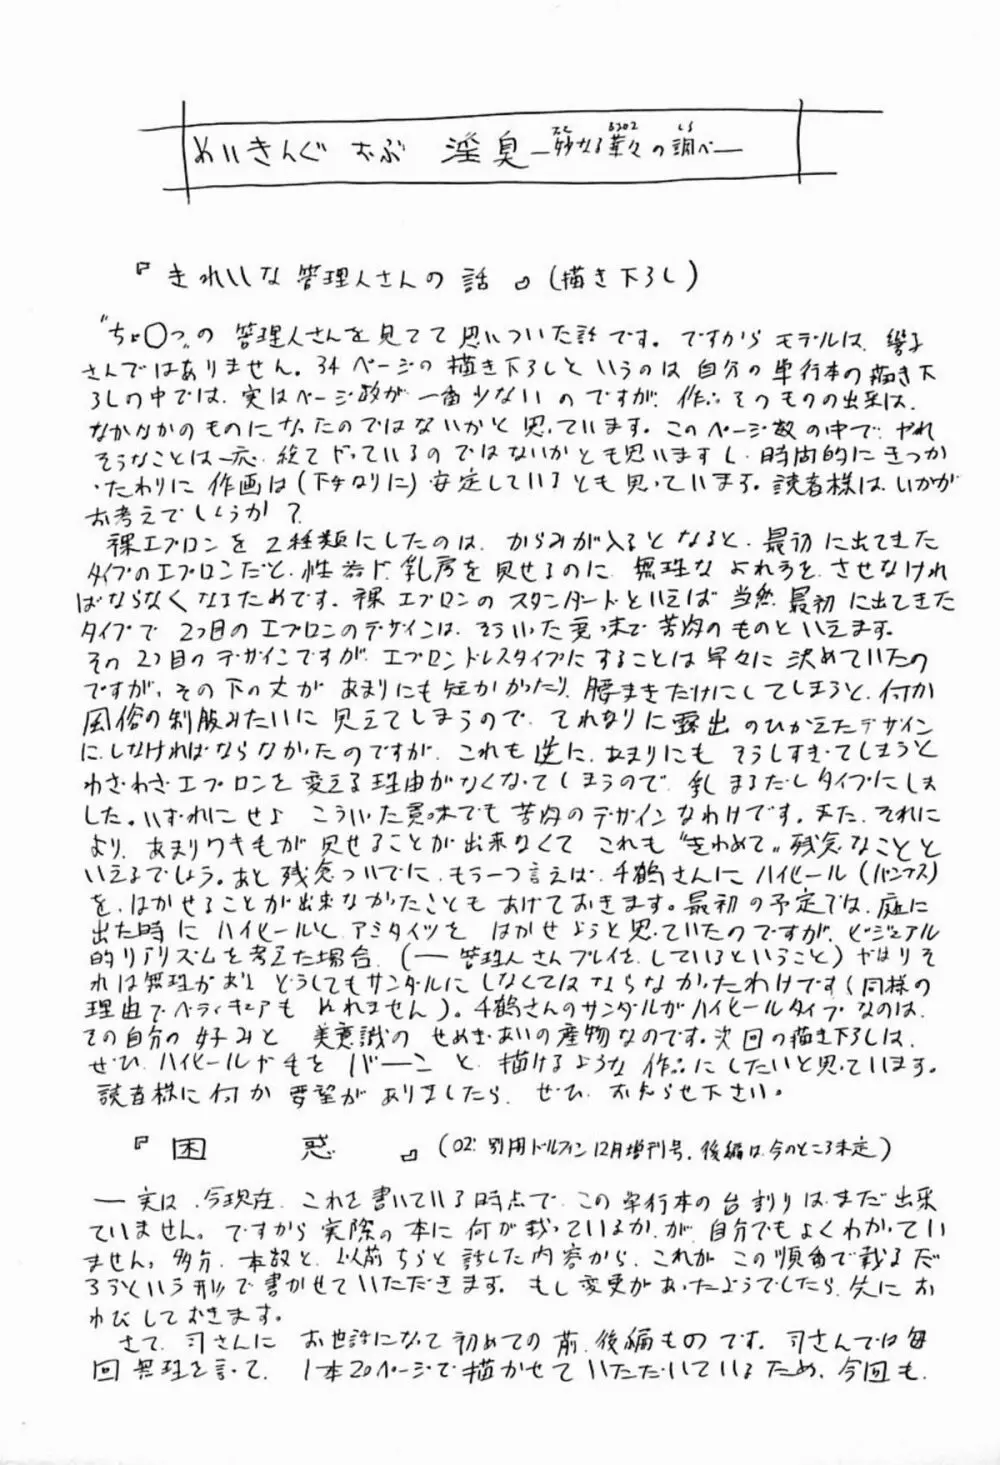 めいきんぐ おぶ 淫臭 ―妙なる華々の調べ―
『きれいな管理人さんの話』(描き下ろし)
"ちゃ〇つ"の 管理人さんを見てて思いついた話です。ですからモデルは、響子
さんではありません。34ページの描き下ろしというのは自分の単行本の描き下
ろしの中では、実はページ数が一番少ないのですが、作品そのものの出来は、
なかなかのものになったのではないかと思っています。このページ数の中で、やれ
そうなことは一応、全てやっているのではないかとも思いますし、時間的にきつか
ったわりに作画は(下手なりに)安定しているとも思っています。読者様は、いかが
お考えでしょうか?
裸エプロンを2種類にしたのは、からみが入るとなると、最初に出てきた
タイプのエプロンだと、性器や、乳房を見せるのに、無理な よれ方を、させなけれ
ばならなくなるためです。裸エプロンのスタンダードといえば当然、最初に出てきた
タイプで2つ目のエプロンのデザインは、そういった意味で苦肉のものといえます。
その2つ目のデザインですが、エプロンドレスタイプにすることは早々に決めていたの
ですが、その下の丈が あまりにも短かかったり、腰まきだけにしてしまうと、何か
風俗の制服みたいに見えてしまうので、それなりに露出のひかえたデザイン
に、しなければならなかったのですが、これも逆に、あまりにも そうしすぎてしまうと
わざわざエプロンを変える理由がなくなってしまうので、乳まるだしタイプにしま
した。いずれにせよ こういった意味でも苦肉のデザインなわけです。また、それに
より、あまりワキ毛が見せることが出来なくて これも"きわめて"残念なことと
いえるでしょう。あと残念ついでに、もう一つ言えば、千鶴さんにハイヒール(パンプス)
を、はかせることが出来なかったことも あげておきます。最初の予定では、庭に
出た時にハイヒールとアミタイツを はかせようと思っていたのですが、ビジュアル
的リアリズムを考えた場合、(―管理人さんプレイを、しているということ)やはりそ
れは無理があり どうしてもサンダルにしなくてはならなかったわけです(同様の
理由でペディキュアも ぬれません)。千鶴さんのサンダルがハイヒールタイプなのは、
その自分の好みと 美意識の せめぎあいの産物なのです。次回の描き下ろしは、
ぜひ、ハイヒールやもをバーンと、描けるような作品にしたいと思っています。
読者様に何か 要望がありましたら、ぜひ、お知らせ下さい。
『困惑』(02' 別冊ドルフィン12月増刊号、後編は今のところ未定)
―実は、今現在、これを書いている時点で、この単行本の台割りは、まだ出来
ていません。ですから実際の本に何が載っているか、が、自分でもよくわかってい
ません。多分、本数と、以前ちらと話した内容から、これが この順番で載るだ
ろうという形で書かせていただきます。もし変更があったようでしたら、先にお
わびしておきます。
さて、司さんに お世話になって初めての前、後編ものです。司さんでは毎
回無理を言って、1本20ページで描かせていただいているため、今回も、